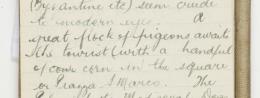 (Byzantine etc) seem crude
to modern eyes. A
great flock of pigeons await
the tourist (with a handful
of cow corn in the square
or Piazza S Marco. The